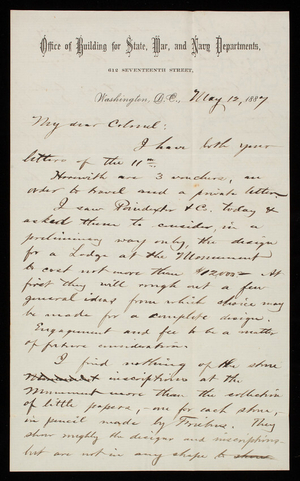 Office of Building for State, War, and Navy Departments,
612 SEVENTEENTH STREET,
Washington, D.C., May 12, 1887
My dear Colonel:
I have both your
letters of the 11th.
Herewith are 3 vouchers, an
order to travel and a private letter.
I saw Poindexter & Co. today &
asked them to consider, in a
preliminary way only, the design
for a Lodge at the Monument
to cost not more than $12,000. At
first they will rough out a few
general ideas from which choice may
be made for a complete design.
Engagement and fee to be a matter
of future consideration.
I find nothing of the stone
inscriptions at the
Monument more than the collection
of little papers, - one for each stone, -
in pencil made by. They
show roughly the designs and inscriptions
but are not in any shape to